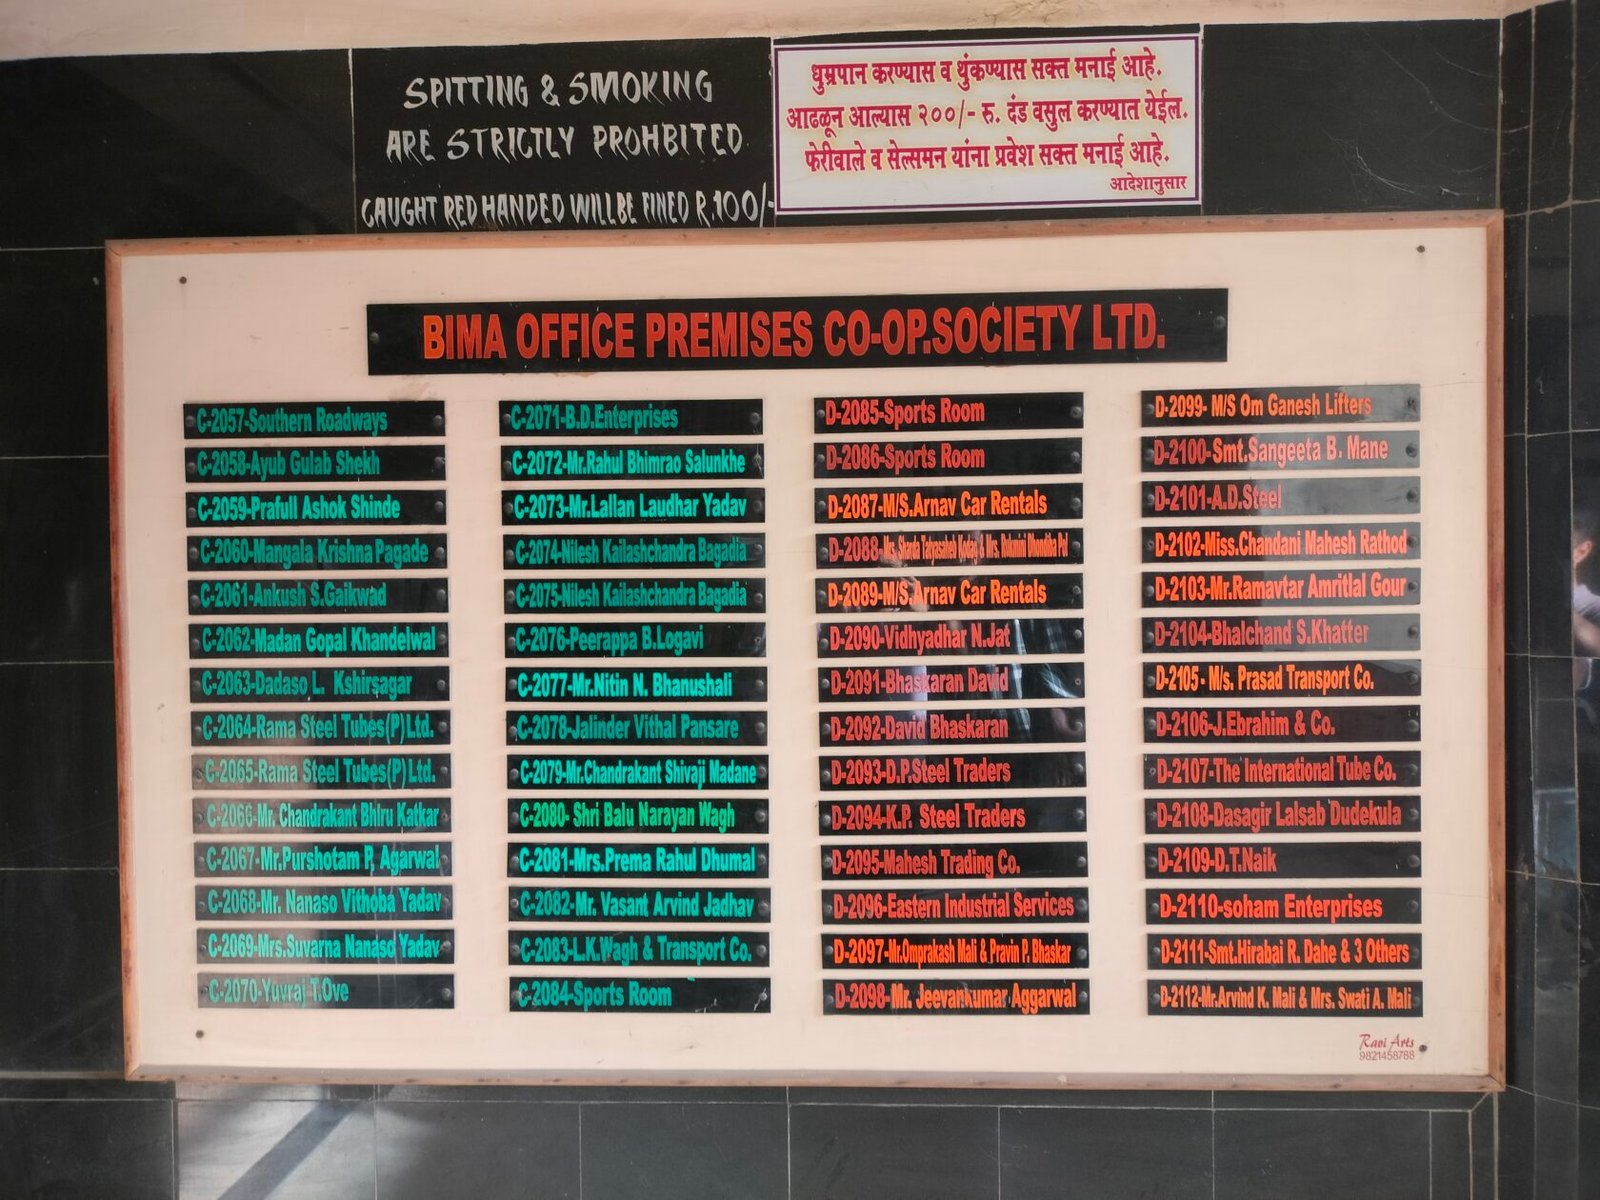 SPITTING & SMOKING
ARE STRICTLY PROHBITED
CAUGHT RED HANDED WILL BE FINED R.100/-
धुम्रपान करण्यास व थुंकण्यास सक्त मनाई आहे.
आढळून आल्यास २००/- रु. दंड वसुल करण्यात येईल.
फेरीवाले व सेल्समन यांना प्रवेश सक्त मनाई आहे.
आदेशानुसार
BIMA OFFICE PREMISES CO-OP.SOCIETY LTD.
C-2057-Southern Roadways
C-2058-Ayub Gulab Shekh
C-2059-Prafull Ashok Shinde
C-2060-Mangala Krishna Pagade
C-2061-Ankush S.Gaikwad
C-2062-Madan Gopal Khandelwal
C-2063-Dadaso L. Kshirsagar
C-2064-Rama Steel Tubes(P)Ltd.
C-2065-Rama Steel Tubes(P)Ltd.
C-2066-Mr. Chandrakant Bhiru Katkar
C-2067-Mr.Purshotam P. Agarwal
C-2068-Mr. Nanaso Vithoba Yadav
C-2069-Mrs.Suvarna Nanaso Yadav
C-2070-Yuvraj T.Ove
C-2071-B.D.Enterprises
C-2072-Mr.Rahul Bhimrao Salunkhe
C-2073-Mr.Lallan Laudhar Yadav
C-2074-Nilesh Kailashchandra Bagadia
C-2075-Nilesh Kailashchandra Bagadia
C-2076-Peerappa B.Logavi
C-2077-Mr.Nitin N. Bhanushali
C-2078-Jalinder Vithal Pansare
C-2079-Mr.Chandrakant Shivaji Madane
C-2080- Shri Balu Narayan Wagh
C-2081-Mrs.Prema Rahul Dhumal
C-2082-Mr. Vasant Arvind Jadhav
C-2083-L.K.Wagh & Transport Co.
C-2084-Sports Room
D-2085-Sports Room
D-2086-Sports Room
D-2087-M/S.Arnav Car Rentals
D-2088-Mrs. Sharda Tatyasaheb & Mrs. Rukmini Dhondiba
D-2089-M/S.Arnav Car Rentals
D-2090-Vidhyadhar N.Jat
D-2091-Bhaskaran David
D-2092-David Bhaskaran
D-2093-D.P.Steel Traders
D-2094-K.P. Steel Traders
D-2095-Mahesh Trading Co.
D-2096-Eastern Industrial Services
D-2097-Mr.Omprakash Mali & Pravin P. Bhaskar
D-2098-Mr. Jeevankumar Aggarwal
D-2099- M/S Om Ganesh Lifters
D-2100-Smt.Sangeeta B. Mane
D-2101-A.D.Steel
D-2102-Miss.Chandani Mahesh Rathod
D-2103-Mr.Ramavtar Amritlal Gour
D-2104-Bhalchand S.Khatter
D-2105- M/s. Prasad Transport Co.
D-2106-J.Ebrahim & Co.
D-2107-The International Tube Co.
D-2108-Dasagir Lalsab Dudekula
D-2109-D.T.Naik
D-2110-soham Enterprises
D-2111-Smt.Hirabai R. Dahe & 3 Others
D-2112-Mr.Arvind K. Mali & Mrs. Swati A. Mali
Ravi Arts
9821458788